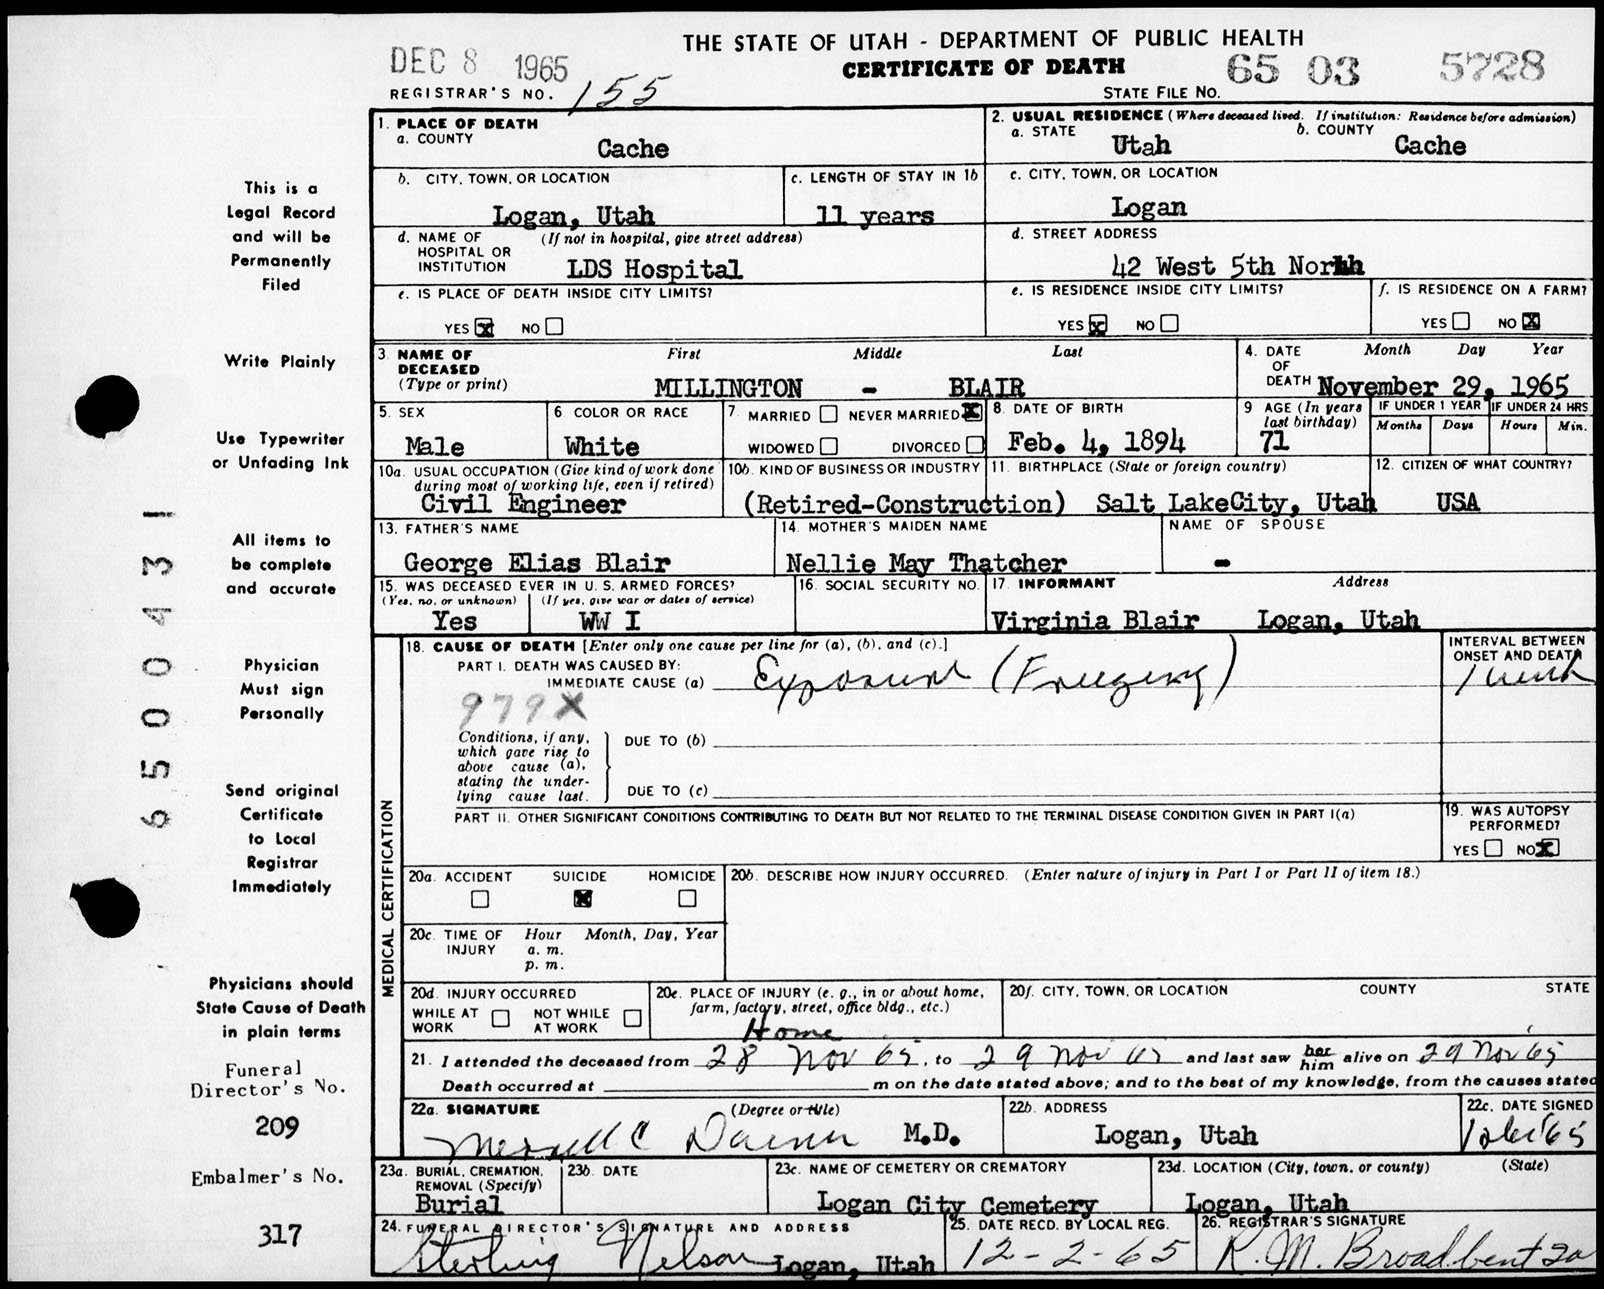 THE STATE OF UTAH - DEPARTMENT OF PUBLIC HEALTH
DEC 8 1965
CERTIFICATE OF DEATH
65 03 5728
REGISTRAR'S NO. 155
STATE FILE NO.
This is a
Legal Record
and will be
Permanently
Filed
Write Plainly
Use Typewriter
or Unfading Ink
All items to
be complete
and accurate
Physician
Must sign
Personally
Send original
Certificate
to Local
Registrar
Immediately
Physicians should
State Cause of Death
in plain terms
Funeral
Director's No.
209
Embalmer's No.
317
6500431
1. PLACE OF DEATH
a. COUNTY
Cache
2. USUAL RESIDENCE (Where deceased lived. If institution: Residence before admission)
a. STATE Utah b. COUNTY Cache
b. CITY, TOWN, OR LOCATION
Logan, Utah
c. LENGTH OF STAY IN 1b
11 years
c. CITY, TOWN, OR LOCATION
Logan
d. NAME OF (If not in hospital, give street address)
HOSPITAL OR
INSTITUTION LDS Hospital
d. STREET ADDRESS
42 West 5th North
e. IS PLACE OF DEATH INSIDE CITY LIMITS?
YES X NO
e. IS RESIDENCE INSIDE CITY LIMITS?
YES X NO
f. IS RESIDENCE ON A FARM?
YES NO X
3. NAME OF DECEASED (Type or print)
First Middle Last
MILLINGTON - BLAIR
4. DATE OF DEATH
Month Day Year
November 29, 1965
5. SEX
Male
6 COLOR OR RACE
White
7. MARRIED NEVER MARRIED X
WIDOWED DIVORCED
8. DATE OF BIRTH
Feb. 4, 1894
9 AGE (In years last birthday)
71
IF UNDER 1 YEAR
Months Days
IF UNDER 24 HRS
Hours Min.
10a. USUAL OCCUPATION (Give kind of work done
during most of working life, even if retired)
Civil Engineer
10b. KIND OF BUSINESS OR INDUSTRY
(Retired-Construction)
11. BIRTHPLACE (State or foreign country)
Salt LakeCity, Utah
12. CITIZEN OF WHAT COUNTRY?
USA
13. FATHER'S NAME
George Elias Blair
14. MOTHER'S MAIDEN NAME
Nellie May Thatcher
NAME OF SPOUSE
-
15. WAS DECEASED EVER IN U. S. ARMED FORCES?
(Yes, no, or unknown) (If yes, give war or dates of service)
Yes WW I
16. SOCIAL SECURITY NO.
17. INFORMANT Address
Virginia Blair Logan, Utah
MEDICAL CERTIFICATION
18. CAUSE OF DEATH [Enter only one cause per line for (a), (b), and (c).]
PART I. DEATH WAS CAUSED BY:
IMMEDIATE CAUSE (a) Exposure (Freezing)
INTERVAL BETWEEN
ONSET AND DEATH
979X
Conditions, if any,
which gave rise to
above cause (a),
stating the under-
lying cause last.
DUE TO (b)
DUE TO (c)
PART II. OTHER SIGNIFICANT CONDITIONS CONTRIBUTING TO DEATH BUT NOT RELATED TO THE TERMINAL DISEASE CONDITION GIVEN IN PART I(a)
19. WAS AUTOPSY
PERFORMED?
YES NO X
20a. ACCIDENT SUICIDE X HOMICIDE
20b. DESCRIBE HOW INJURY OCCURRED. (Enter nature of injury in Part I or Part II of item 18.)
20c. TIME OF INJURY
Hour Month, Day, Year
a. m.
p. m.
20d. INJURY OCCURRED
WHILE AT WORK NOT WHILE AT WORK
20e. PLACE OF INJURY (e. g., in or about home,
farm, factory, street, office bldg., etc.)
Home
20f. CITY, TOWN, OR LOCATION COUNTY STATE
21. I attended the deceased from 28 Nov 65, to 29 Nov 65 and last saw her him alive on 29 Nov 65
Death occurred at m on the date stated above; and to the best of my knowledge, from the causes stated
22a. SIGNATURE (Degree or title)
Merrill C Daines M.D.
22b. ADDRESS
Logan, Utah
22c. DATE SIGNED
23a. BURIAL, CREMATION,
REMOVAL (Specify)
Burial
23b. DATE
23c. NAME OF CEMETERY OR CREMATORY
Logan City Cemetery
23d. LOCATION (City, town, or county) (State)
Logan, Utah
24. FUNERAL DIRECTOR'S SIGNATURE AND ADDRESS
Sterling Nelson Logan, Utah
25. DATE RECD. BY LOCAL REG.
12-2-65
26. REGISTRAR'S SIGNATURE
R. M. Broadbent